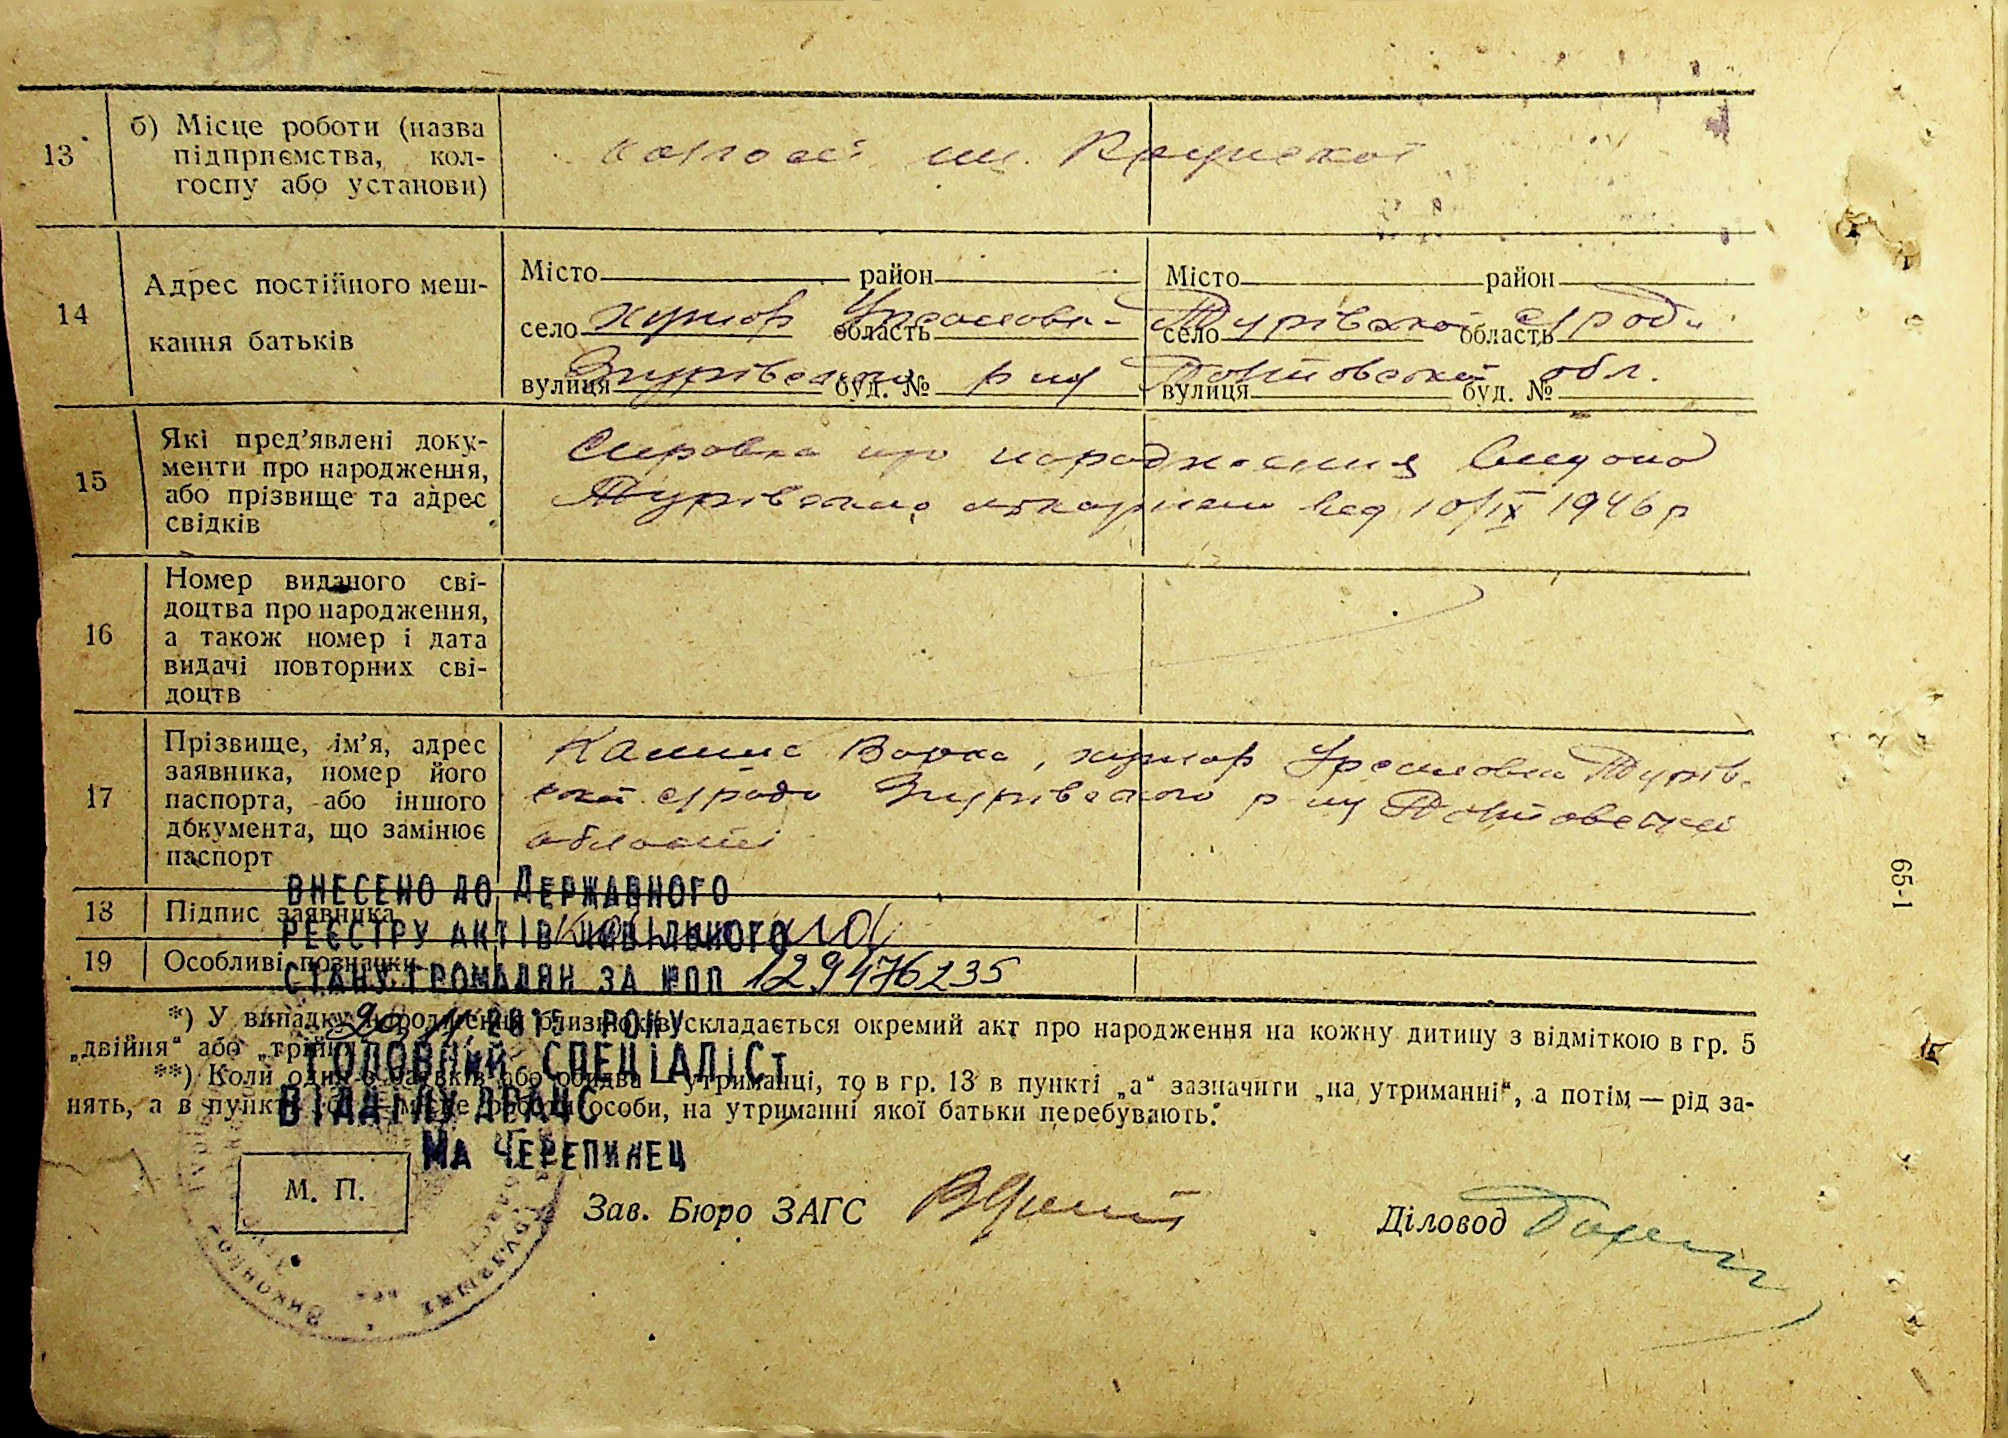 13
б) Місце роботи (назва
підприємства, кол-
госпу або установи)
колгосп ім. Крупської
14
Адрес постійного меш-
кання батьків
Місто район Місто район
село хутор область село Турівської область с/ради
вулиця Згурівського буд. № р-ну вулиця Полтавської буд. № обл.
15
Які пред'явлені доку-
менти про народження,
або прізвище та адрес
свідків
Справка про народження видана
Турівською від 10/IX 1946 р
16
Номер виданого сві-
доцтва про народження,
а також номер і дата
видачі повторних сві-
доцтв
17
Прізвище, ім'я, адрес
заявника, номер його
паспорта, або іншого
документа, що замінює
паспорт
Варка, хутор Турів-
ської с/ради Згурівського р-ну Полтавської
області
18 Підпис заявника
19 Особливі позначки
ВНЕСЕНО ДО ДЕРЖАВНОГО
РЕЄСТРУ АКТІВ ЦИВІЛЬНОГО
СТАНУ ГРОМАДЯН ЗА №ПП 129476235
2015 РОКУ
ГОЛОВНИЙ СПЕЦІАЛІСТ
ВІДДІЛУ ДРАЦС
МА ЧЕРЕПИНЕЦ
*) У випадку народження близнюків складається окремий акт про народження на кожну дитину з відміткою в гр. 5
„двійня" або „трійня"
**) Коли один з батьків або обидва — утриманці, то в гр. 13 в пункті „а" зазначити „на утриманні", а потім — рід за-
нять, а в пункті „б" — місце роботи особи, на утриманні якої батьки перебувають.
М. П.
Зав. Бюро ЗАГС
Діловод
65-1